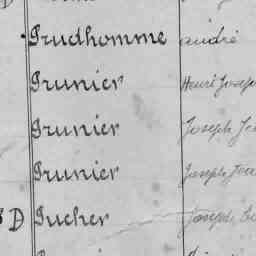 Prudhomme André
Prunier Henri Joseph
Prunier Joseph
Prunier Joseph
D Pucher Joseph